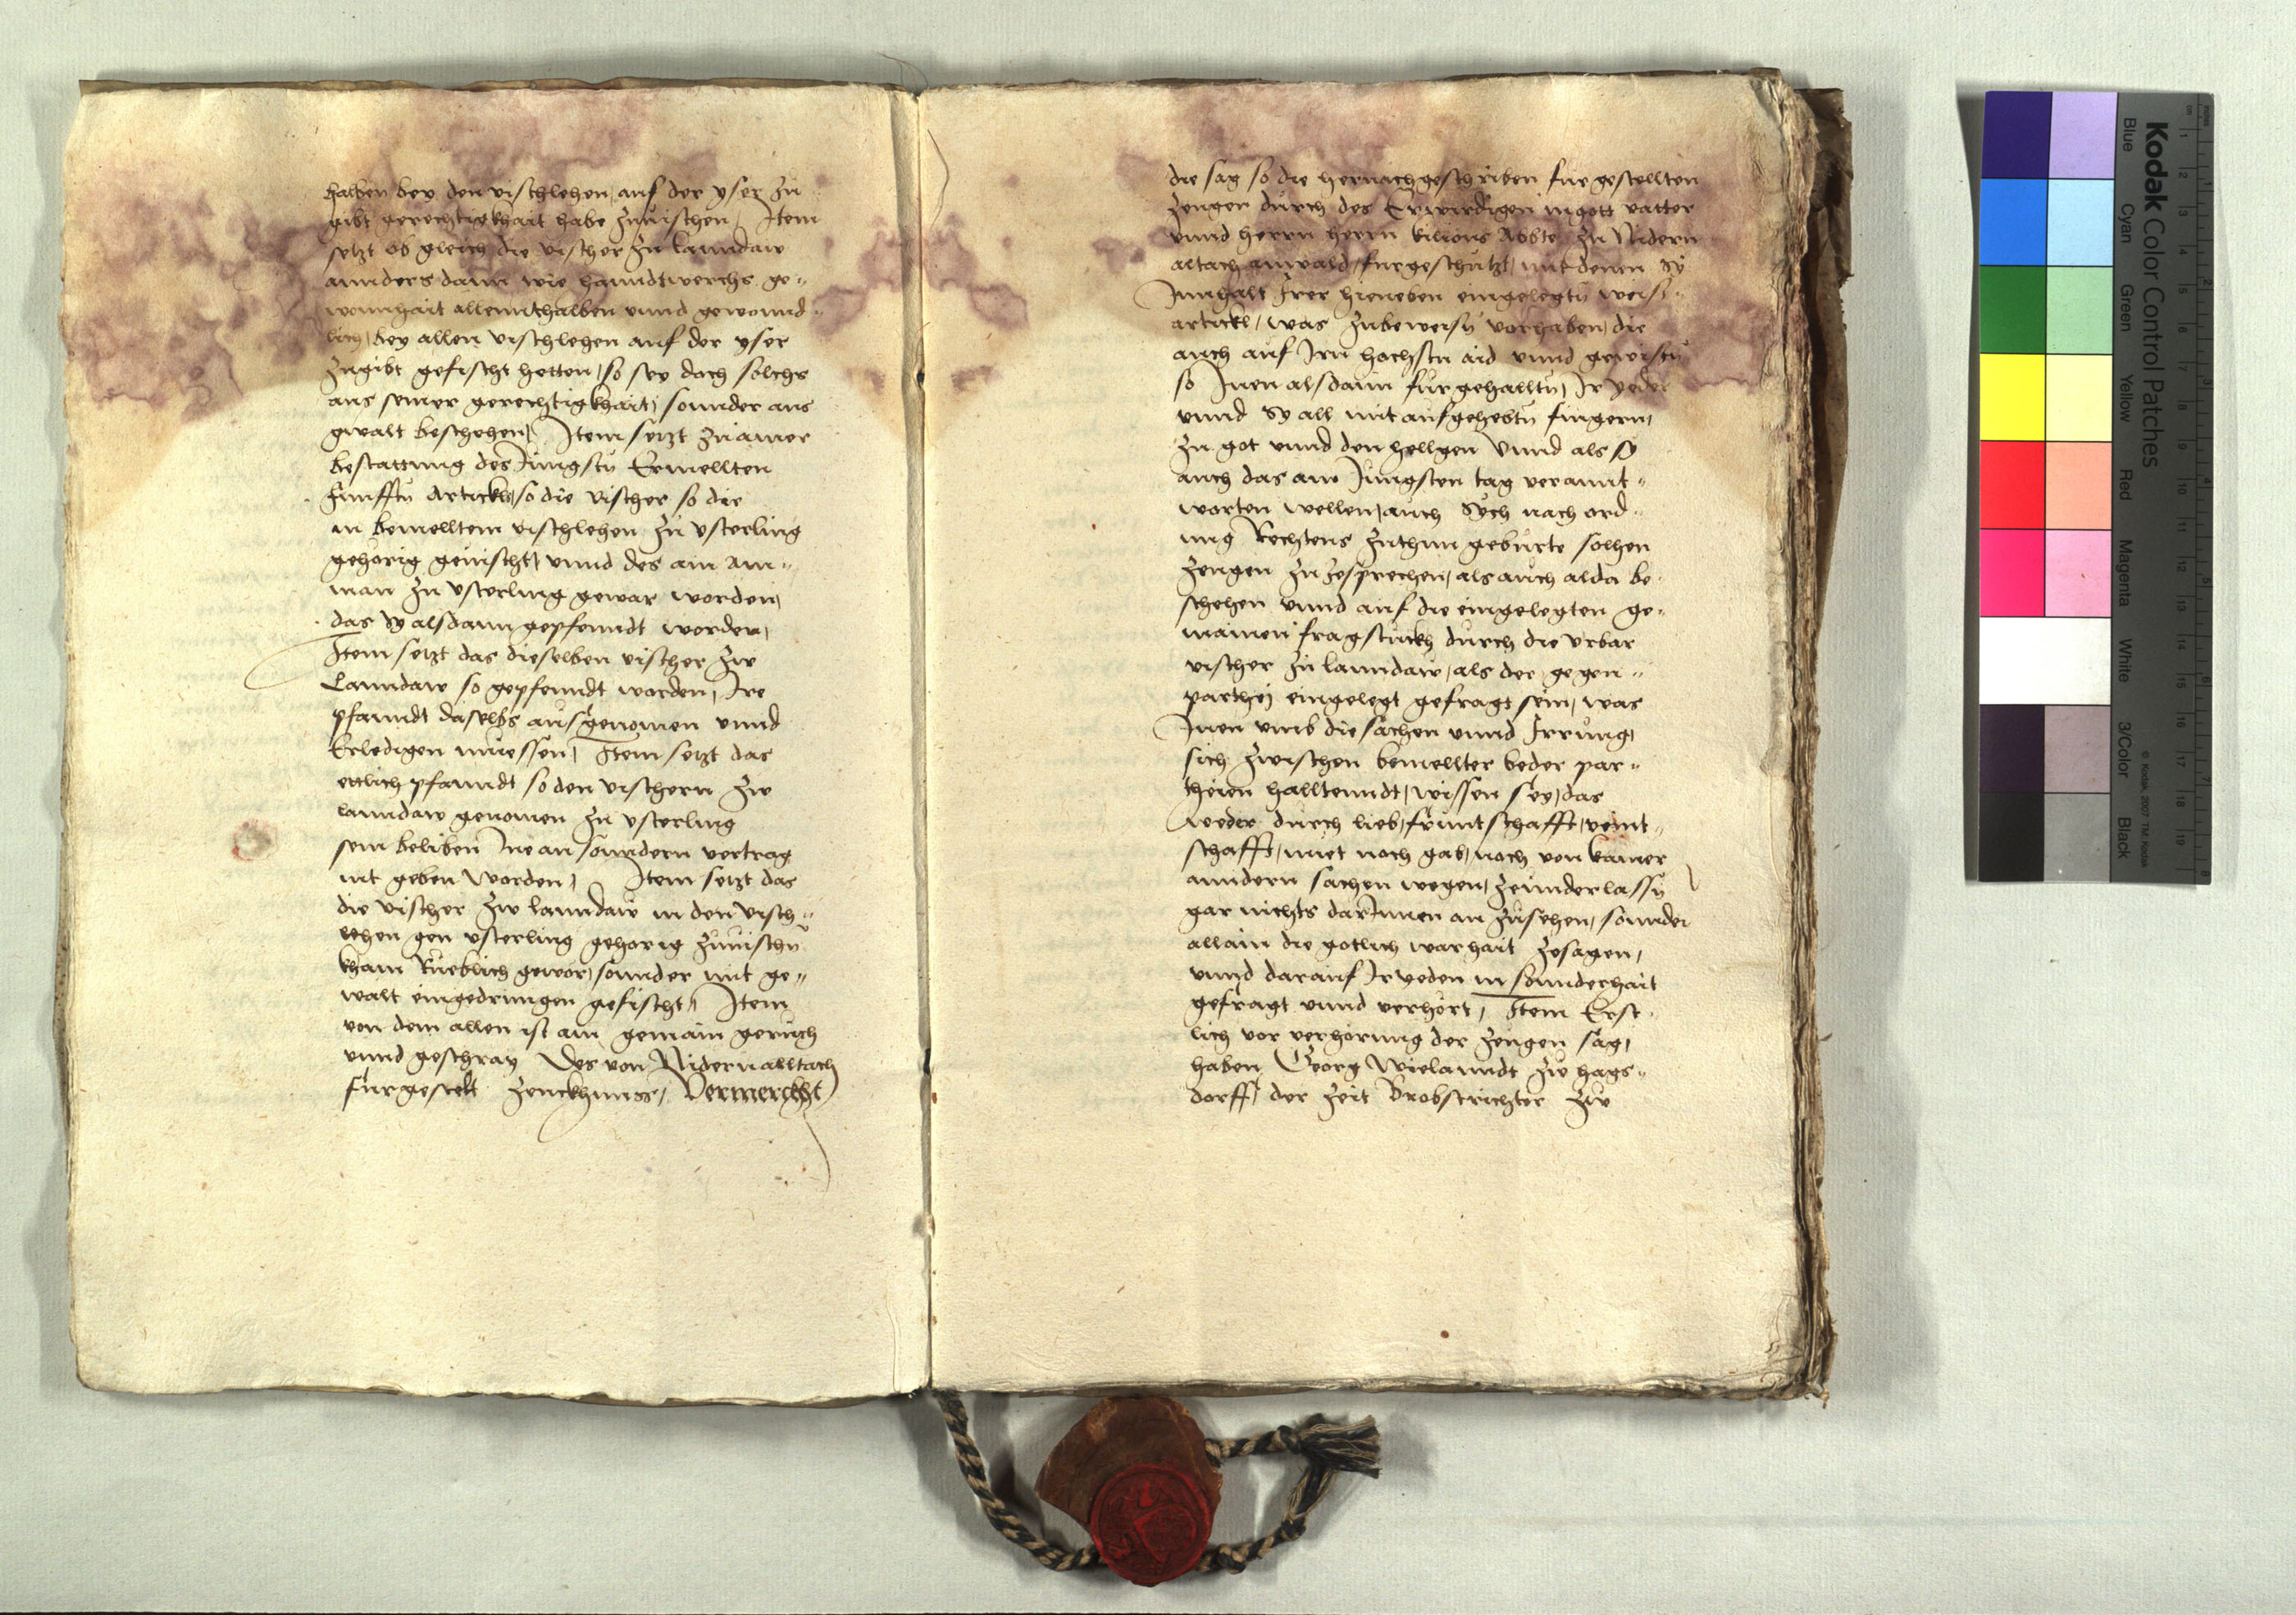 halben bey den vischlehen, auf der yser zu
gibt gerechtigkhait habe zuuischen, Item
setzt ob gleich die vischer zu Lanndaw
annders dann wie hanndtwerchs ge„
wonnhait allennthalben vnnd gewonnd„
lich, bey allen vischlehen auf der yser
zugibt gefischt hetten, so sey doch solchs
aus seiner gerechtigkhait, sonnder aus
gwalt beschehen, Item setzt zu ainer
bestattung des Jungstn Ermellten
funfftn Artickls, so die vischer so die
in bemelltem vischlehen zu vsterling
gehorig geuischt, vnnd des ain Am„
man zu vsterling gewar worden,
das sy alsdann gepfenndt worden,
Item setzt das dieselben vischer zw
Lanndaw so gepfenndt worden, Ire
pfanndt daselbs ausgenomen vnnd
Erledigen muessen, Item setzt das
ettlich pfanndt so den vischern zw
lanndaw genomen zu vsterling
sein beliben Ine an sonndern vertrag
nit geben worden, Item setzt das
die vischer zw lanndaw in den visch„
lehen gen vsterling gehorig zuuischn
khain Rueblich gewer, sonnder mit ge„
walt eingedrungen gefischt, Item
von dem allen ist ain gemain geruch
vnnd geschray Des von Nidernalltach
furgestelt zeuckhnuss, Vermerckht
die sag so die hernachgeschriben furgestellten
zeugen durch des Erwirdigen in gott vatter
vnnd herrn herrn kilions Abbte zu Nidern
altach anwald, furgeschutzt, mit denen sy
Innhalt Irer hieneben eingelegtn weis„
artickl, was zubeweisn vorhaben, die
auch auf Irn hochstn aid vnnd gewistn
so Inen alsdann furgehalltn, Ir yeder
vnnd sy all mit aufgehebtn fingern,
zu got vnnd den hellgen Vnnd als sy
auch das am Jungsten tag verannt„
worten wellen, auch sych nach ord„
nng Rechtens zuthun geburte solhen
zeugen zu zesprechen, als auch alda be„
schehen vnnd auf die eingelegten ge„
mainen fragstuckh durch die vrbar
vischer zu lanndaw, als der gegen„
parthej eingelegt gefragt sein, was
Inen vmb die sachen vnnd Irrung,
sich zwischen bemellter beder par„
theien halltenndt, wissen sey, das
weder durch lieb, fruntschafft, veint„
schafft, miet noch gab, noch von kainer
anndern sachen wegen, zeunderlassn
gar nichts darInnen an zusehen, sonnder
allain die gotlich warhait zesagen,
vnnd darauf Ir yeden in sonnderhait
gefragt vnnd verhort, Item Erst„
lich vor verhorung der zeugen sag,
haben Georg Wielanndt zw hags„
dorff, der zeit Brobstrichter zw
Kodak Color Control Patches
Blue Cyan Green Yellow Red Magenta White 3/Color Black
© Kodak, 2007 TM: Kodak